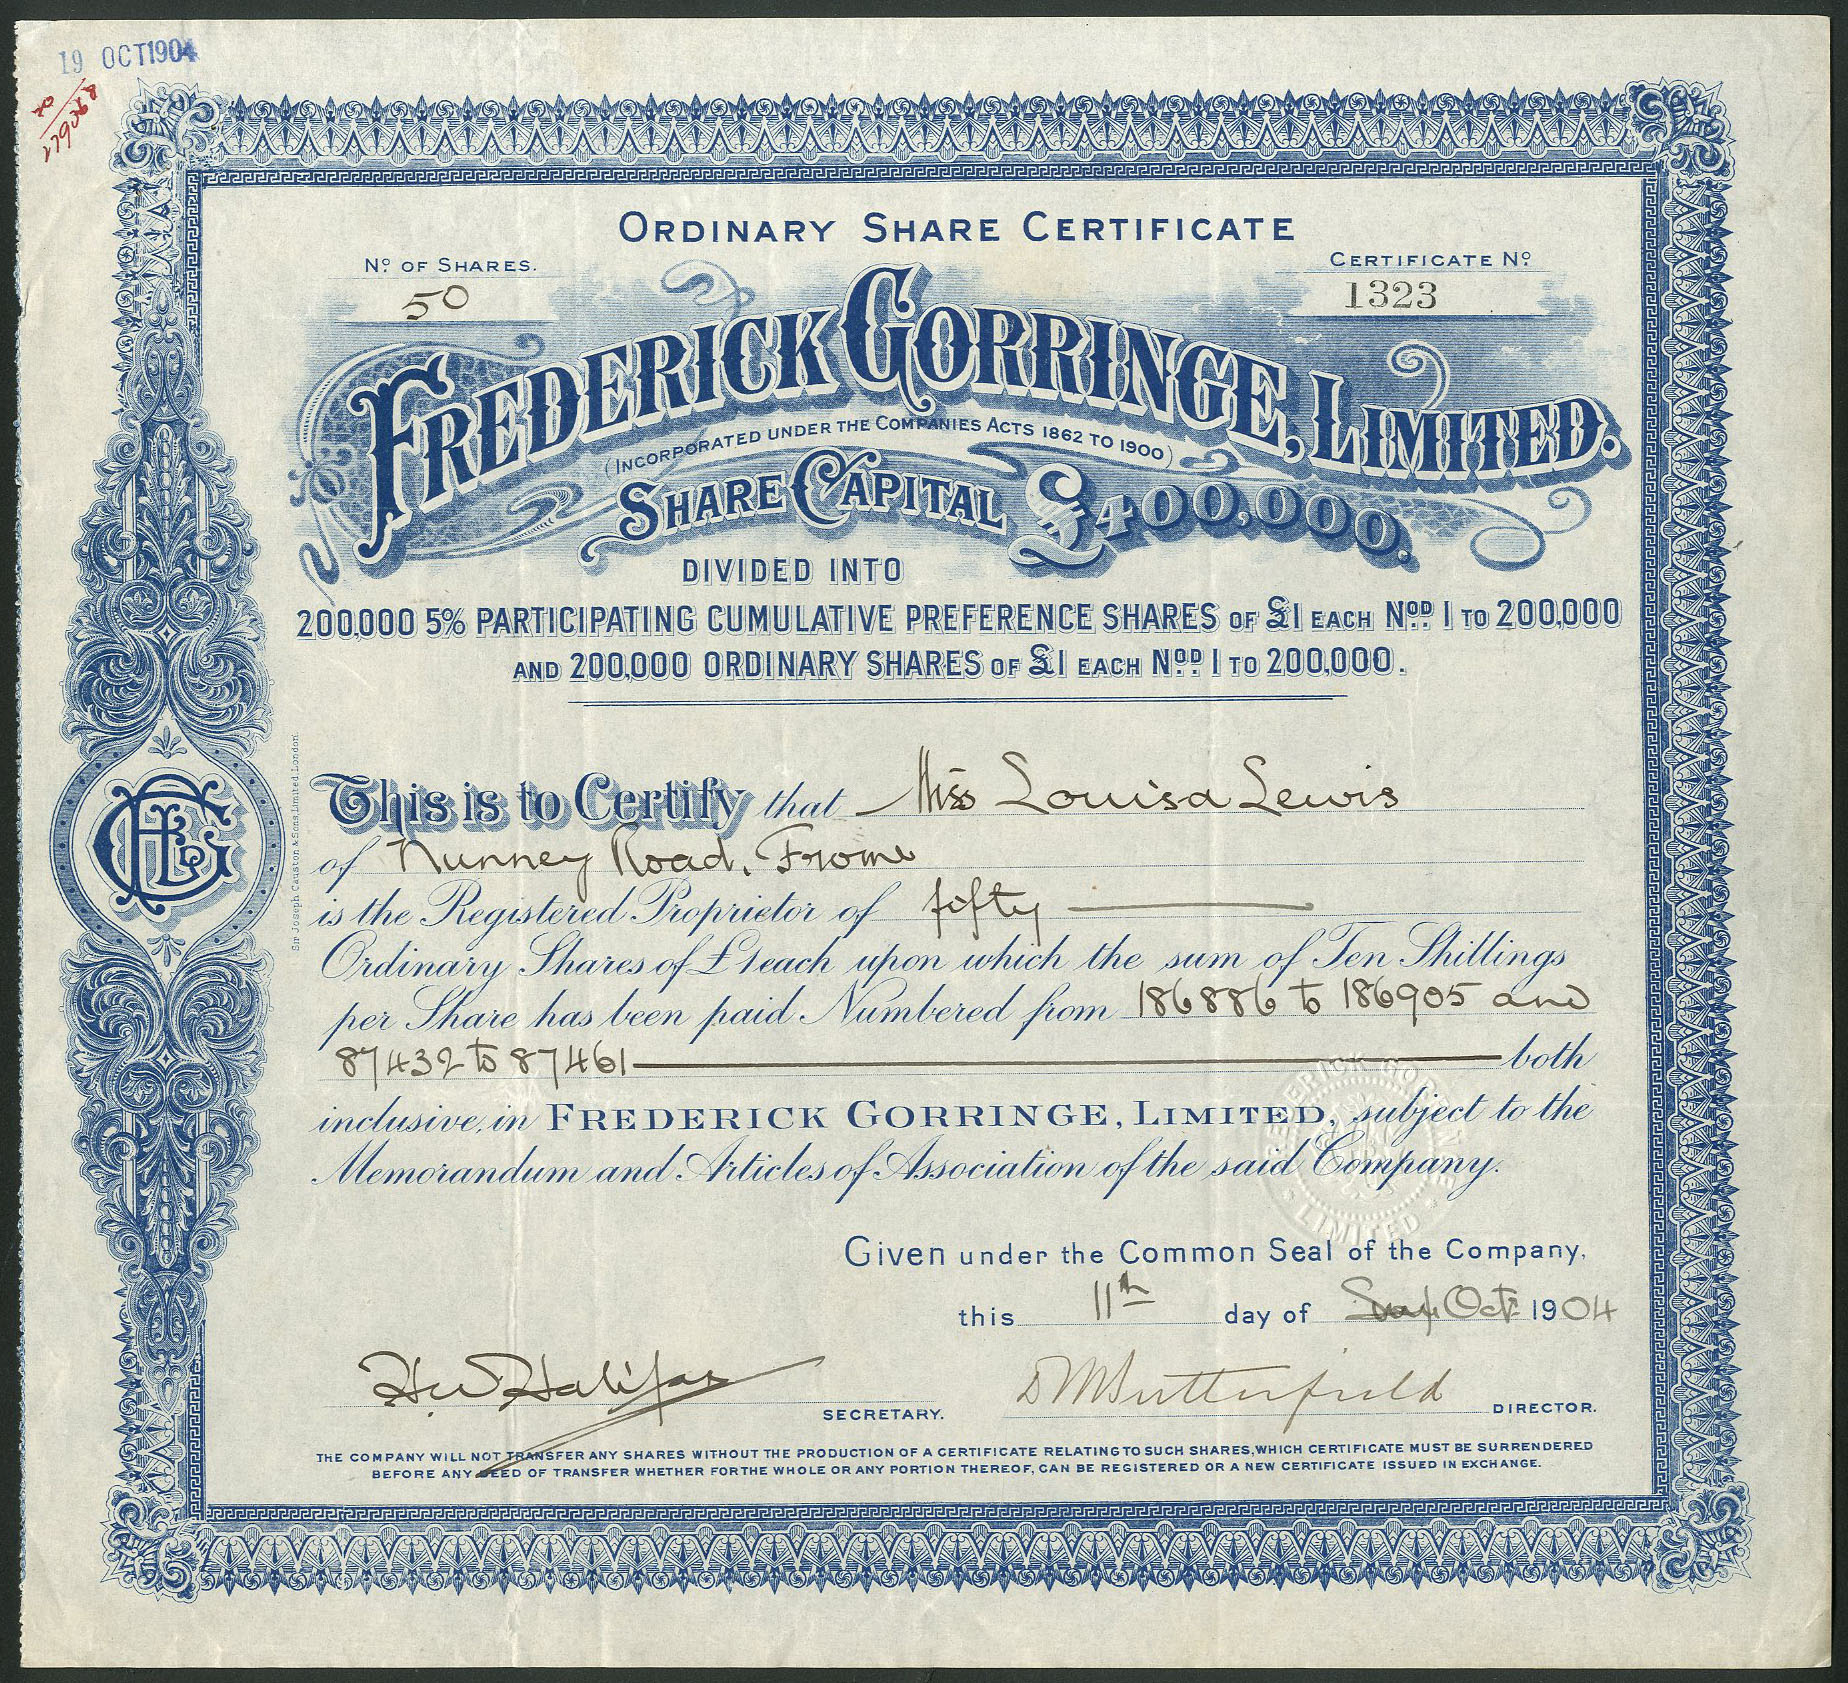 19 OCT 1904
ORDINARY SHARE CERTIFICATE
No. OF SHARES.
50
CERTIFICATE No.
1323
FREDERICK GORRINGE, LIMITED.
(INCORPORATED UNDER THE COMPANIES ACTS 1862 TO 1900)
SHARE CAPITAL £400,000.
DIVIDED INTO
200,000 5% PARTICIPATING CUMULATIVE PREFERENCE SHARES OF £1 EACH NOD. 1 TO 200,000
AND 200,000 ORDINARY SHARES OF £1 EACH NOD. 1 TO 200,000.
This is to Certify that Miss Louisa Lewis
of Nunney Road, Frome
is the Registered Proprietor of fifty
Ordinary Shares of £1 each upon which the sum of Ten Shillings
per Share has been paid Numbered from 186886 to 186905 and
87432 to 87461 both
inclusive, in FREDERICK GORRINGE, LIMITED, subject to the
Memorandum and Articles of Association of the said Company.
FREDERICK GORRINGE LIMITED
Given under the Common Seal of the Company,
this 11th day of Oct. 1904
H W Halifax
SECRETARY.
D M Butterfield
DIRECTOR.
THE COMPANY WILL NOT TRANSFER ANY SHARES WITHOUT THE PRODUCTION OF A CERTIFICATE RELATING TO SUCH SHARES, WHICH CERTIFICATE MUST BE SURRENDERED
BEFORE ANY DEED OF TRANSFER WHETHER FOR THE WHOLE OR ANY PORTION THEREOF, CAN BE REGISTERED OR A NEW CERTIFICATE ISSUED IN EXCHANGE.
Sir Joseph Causton & Sons, Limited, London